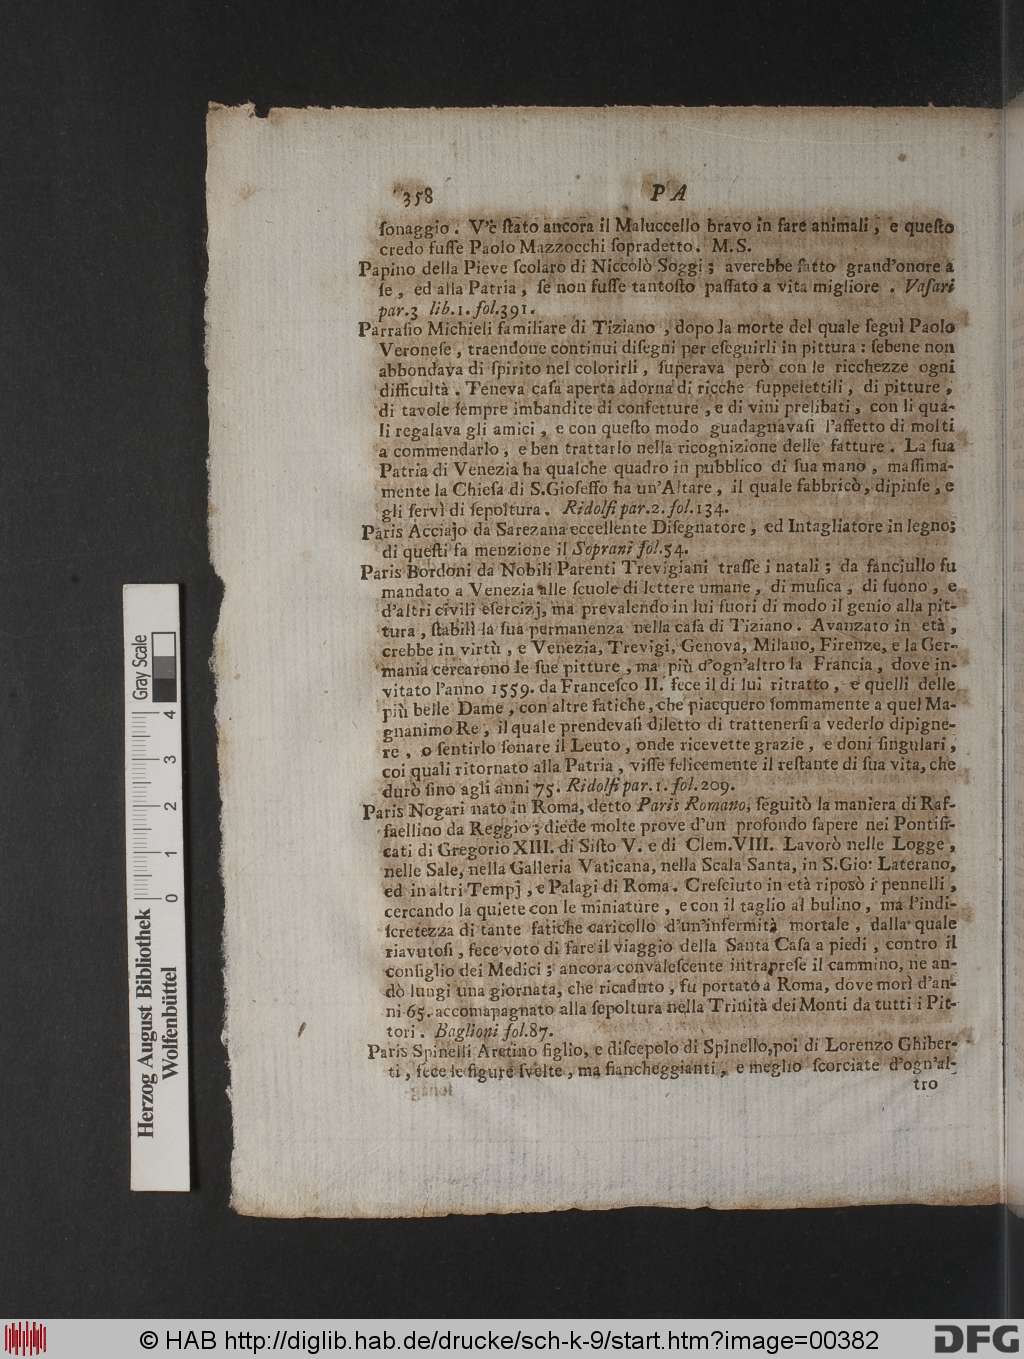 358
P A
ſonaggio. V'è ſtato ancora il Maluccello bravo in fare animali, e queſto
credo fuſſe Paolo Mazzocchi ſopradetto. M.S.
Papino della Pieve ſcolaro di Niccolò Soggi; averebbe fatto grand'onore a
ſe, ed alla Patria, ſe non fuſſe tantoſto paſſato a vita migliore. Vaſari
par.3 lib.1.fol.391.
Parraſio Michieli familiare di Tiziano, dopo la morte del quale ſeguì Paolo
Veroneſe, traendone continui diſegni per eſeguirli in pittura: ſebene non
abbondava di ſpirito nel colorirli, ſuperava però con le ricchezze ogni
difficultà. Teneva caſa aperta adorna di ricche ſuppelettili, di pitture,
di tavole ſempre imbandite di confetture, e di vini prelibati, con li qua-
li regalava gli amici, e con queſto modo guadagnavaſi l'affetto di molti
a commendarlo, e ben trattarlo nella ricognizione delle fatture. La ſua
Patria di Venezia ha qualche quadro in pubblico di ſua mano, maſſima-
mente la Chieſa di S.Gioſeffo ha un'Altare, il quale fabbricò, dipinſe, e
gli ſervì di ſepoltura. Ridolfi par.2.fol.134.
Paris Acciajo da Sarezana eccellente Diſegnatore, ed Intagliatore in legno;
di queſti fa menzione il Soprani fol.54.
Paris Bordoni da Nobili Parenti Trevigiani traſſe i natali; da fanciullo fu
mandato a Venezia alle ſcuole di lettere umane, di muſica, di ſuono, e
d'altri civili eſercizj, ma prevalendo in lui fuori di modo il genio alla pit-
tura, ſtabilì la ſua permanenza nella caſa di Tiziano. Avanzato in età,
crebbe in virtù, e Venezia, Trevigi, Genova, Milano, Firenze, e la Ger-
mania cercarono le ſue pitture, ma più d'ogn'altro la Francia, dove in-
vitato l'anno 1559. da Franceſco II. fece il di lui ritratto, e quelli delle
più belle Dame, con altre fatiche, che piacquero ſommamente a quel Ma-
gnanimo Re, il quale prendevaſi diletto di trattenerſi a vederlo dipigne-
re, o ſentirlo ſonare il Leuto, onde ricevette grazie, e doni ſingulari,
coi quali ritornato alla Patria, viſſe felicemente il reſtante di ſua vita, che
durò ſino agli anni 75. Ridolfi par.1.fol.209.
Paris Nogari nato in Roma, detto Paris Romano, ſeguitò la maniera di Raf-
faellino da Reggio; diede molte prove d'un profondo ſapere nei Pontifi-
cati di Gregorio XIII. di Siſto V. e di Clem.VIII. Lavorò nelle Logge,
nelle Sale, nella Galleria Vaticana, nella Scala Santa, in S.Gio: Laterano,
ed in altri Tempj, e Palagi di Roma. Creſciuto in età ripoſò i pennelli,
cercando la quiete con le miniature, e con il taglio al bulino, ma l'indi-
ſcretezza di tante fatiche caricollo d'un'infermità mortale, dalla quale
riavutoſi, fece voto di fare il viaggio della Santa Caſa a piedi, contro il
conſiglio dei Medici; ancora convaleſcente intrapreſe il cammino, ne an-
dò lungi una giornata, che ricaduto, fu portato a Roma, dove morì d'an-
ni 65. accomapagnato alla ſepoltura nella Trinità dei Monti da tutti i Pit-
tori. Baglioni fol.87.
Paris Spinelli Aretino figlio, e diſcepolo di Spinello,poi di Lorenzo Ghiber-
ti, fece le figure ſvelte, ma fiancheggianti, e meglio ſcorciate d'ogn'al-
tro
Herzog August Bibliothek
Wolfenbüttel
Gray Scale
0 1 2 3 4
© HAB http://diglib.hab.de/drucke/sch-k-9/start.htm?image=00382
DFG